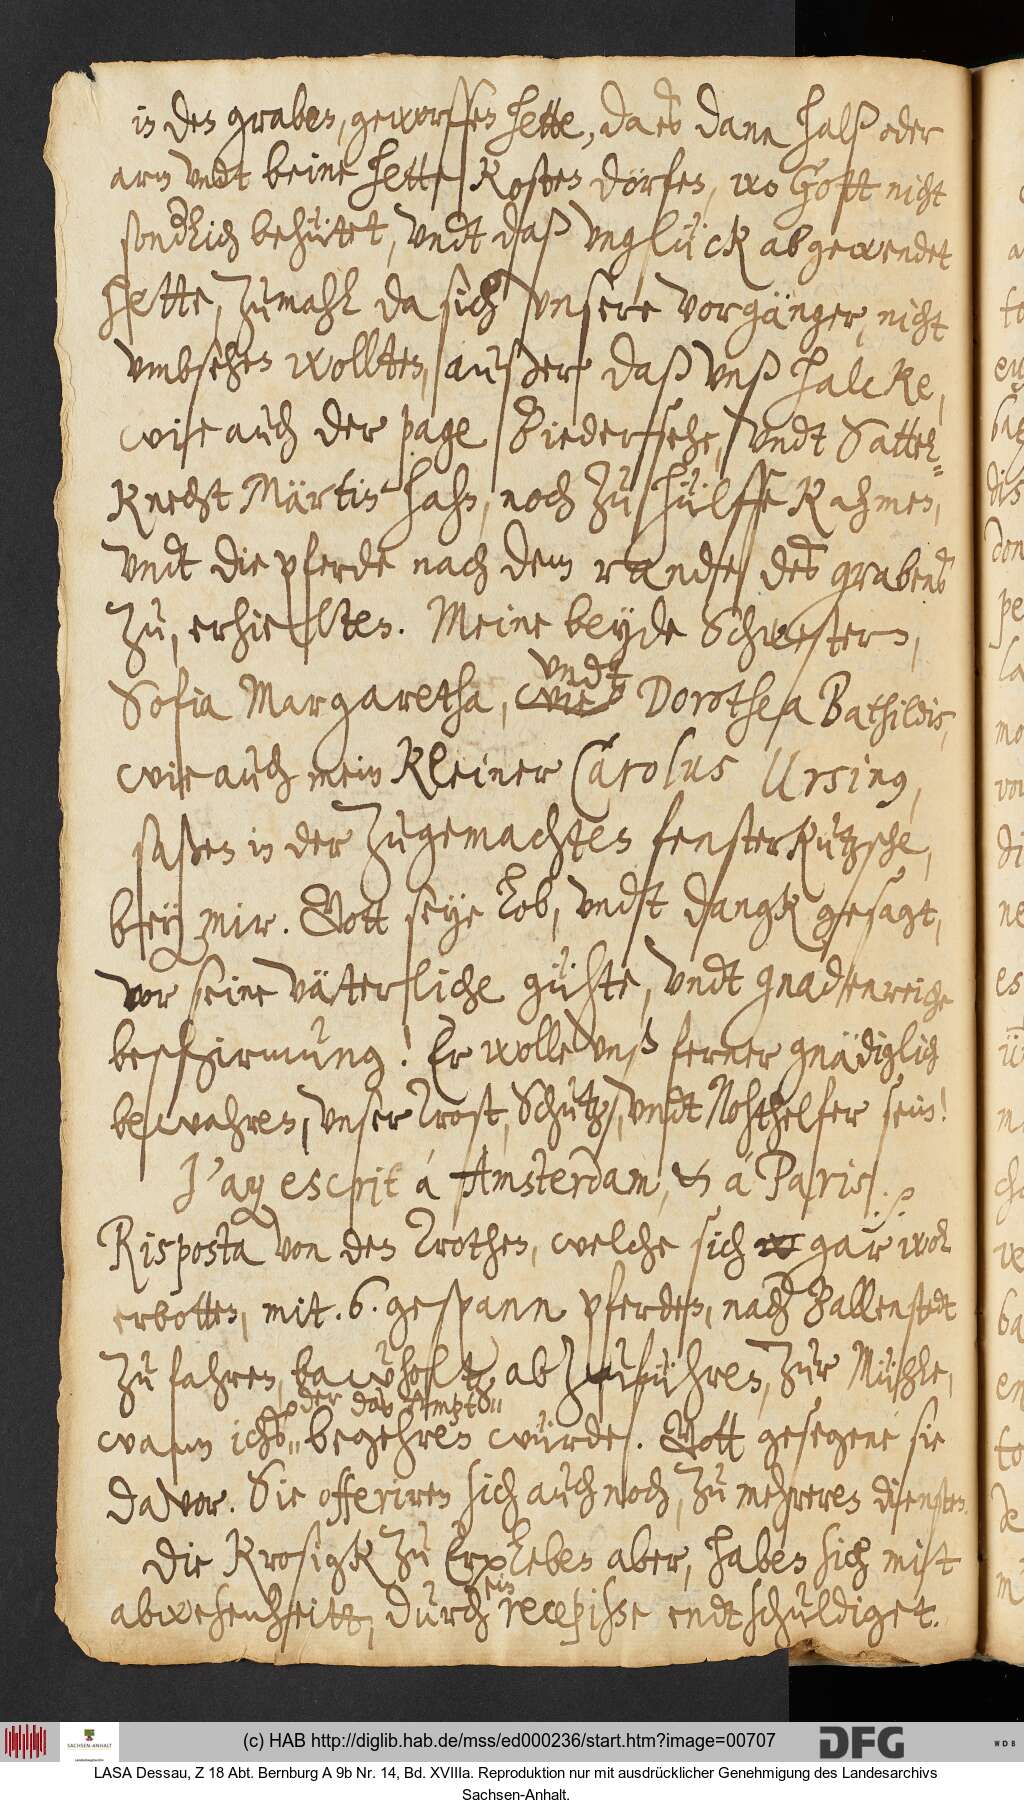 in den graben, geworffen hette, da es dann halß oder
arm undt beine hette kosten dörfen, wo Gott nicht
sonderlich behütet, undt daß unglück abgewendet
hette, zumahl da sich unsere vorgänger, nicht
umbsehen wollten, außer daß unß Halcke,
wie auch der page Biedersehe, undt Sattel-
knecht Märtin Hahn, noch zu hülffe kahmen,
undt die pferde nach dem rande des grabens
zu, erhielten. Meine beyde Schwestern,
undt
Sofia Margaretha, wie Dorothea Bathildis,
wie auch mein kleiner Carolus Ursinus,
saßen in der zugemachten fensterkutzsche,
bey mir. Gott seye lob, undt dangk gesagt,
vor seine väterliche gühte, undt gnadenreiche
beschirmung! Er wolle unß ferner gnädiglich
bewahren, unser Trost, Schutz, undt Nohthelfer sein!
J'ay escrit á Amsterdam, & á Paris. /.
Risposta von den Trothen, welche sich gar wol
erbotten, mit .6. gespann pferden, nach Ballenstedt
zu fahren, bawholtz abzuführen, zur Mühle,
oder das Ampt"
wann ichs" begehren würde. Gott gesegene sie
davor. Sie offeriren sich auch noch, zu mehreren diensten.
Die Krosigk zu Erxleben aber, haben sich mitt
ein
abwesenheitt, durch recepisse endtschuldiget.
(c) HAB http://diglib.hab.de/mss/ed000236/start.htm?image=00707
SACHSEN-ANHALT
DFG
WDB
LASA Dessau, Z 18 Abt. Bernburg A 9b Nr. 14, Bd. XVIIIa. Reproduktion nur mit ausdrücklicher Genehmigung des Landesarchivs
Sachsen-Anhalt.